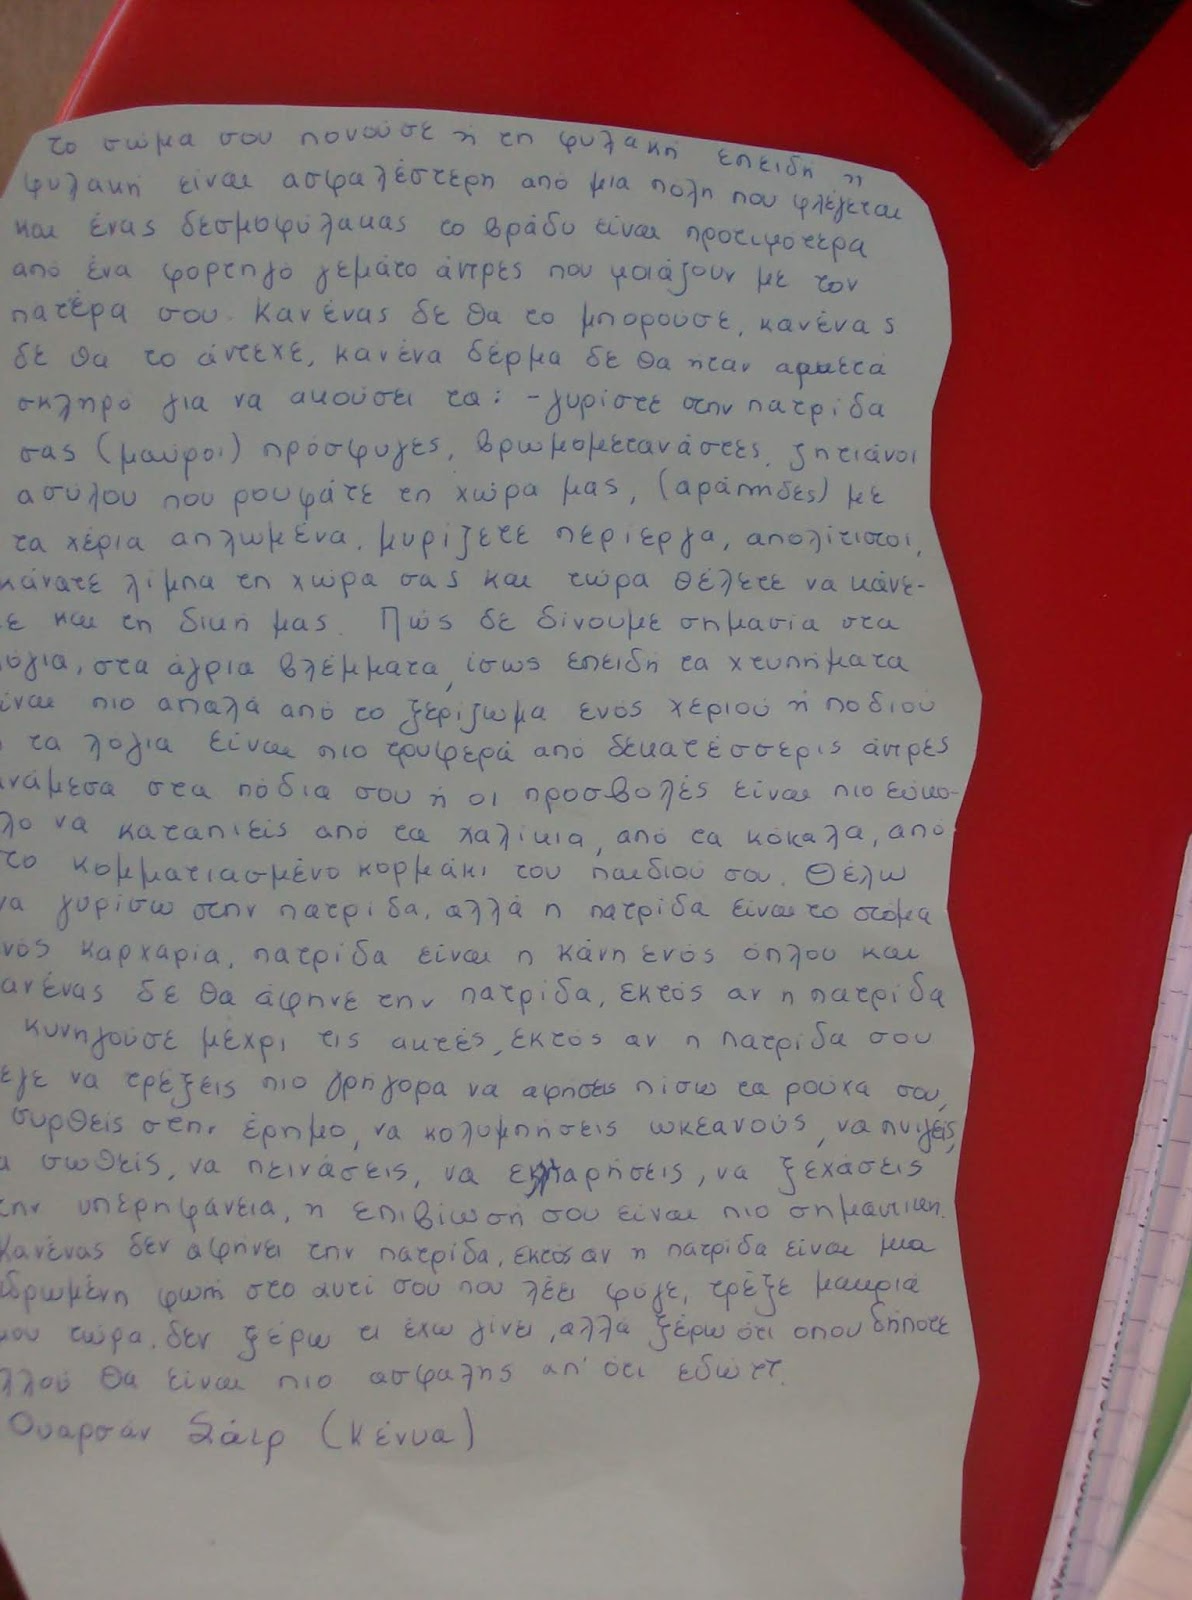 το σώμα σου πονούσε ή τη φυλακή επειδή η
φυλακή είναι ασφαλέστερη από μια πόλη που φλέγεται
και ένας δεσμοφύλακας το βράδυ είναι προτιμότερα
από ένα φορτηγό γεμάτο άντρες που μοιάζουν με τον
πατέρα σου. Κανένας δε θα το μπορούσε, κανένας
δε θα το άντεχε, κανένα δέρμα δε θα ήταν αρκετά
σκληρό για να ακούσει τα: - γυρίστε στην πατρίδα
σας (μαύροι) πρόσφυγες, βρωμομετανάστες, ζητιάνοι
ασύλου που ρουφάτε τη χώρα μας, (αράπηδες) με
τα χέρια απλωμένα, μυρίζετε περίεργα, απολίτιστοι,
κάνατε λίμπα τη χώρα σας και τώρα θέλετε να κάνε-
ε και τη δική μας. Πώς δε δίνουμε σημασία στα
όγια, στα άγρια βλέμματα, ίσως επειδή τα χτυπήματα
ίναι πιο απαλά από το ξερίζωμα ενός χεριού ή ποδιού
τα λόγια είναι πιο τρυφερά από δεκατέσσερις άντρες
νάμεσα στα πόδια σου ή οι προσβολές είναι πιο εύκο-
λο να καταπιείς από τα χαλίκια, από τα κόκαλα, από
το κομματιασμένο κορμάκι του παιδιού σου. Θέλω
να γυρίσω στην πατρίδα, αλλά η πατρίδα είναι το στόμα
νός καρχαρία, πατρίδα είναι η κάνη ενός όπλου και
ανένας δε θα άφηνε την πατρίδα, εκτός αν η πατρίδα
κυνηγούσε μέχρι τις ακτές, εκτός αν η πατρίδα σου
εγε να τρέξεις πιο γρήγορα να αφήσεις πίσω τα ρούχα σου,
συρθείς στην έρημο, να κολυμπήσεις ωκεανούς, να πνιγείς,
α σωθείς, να πεινάσεις, να εκλιπαρήσεις, να ξεχάσεις
την υπερηφάνεια, η επιβίωσή σου είναι πιο σημαντική.
Κανένας δεν αφήνει την πατρίδα, εκτός αν η πατρίδα είναι μια
δρωμένη φωνή στο αυτί σου που λέει φύγε, τρέξε μακριά
μου τώρα, δεν ξέρω τι έχω γίνει, αλλά ξέρω ότι οπουδήποτε
λλού θα είναι πιο ασφαλής απ' ότι εδώ.
Ουαρσάν Σάιρ (Κένυα)